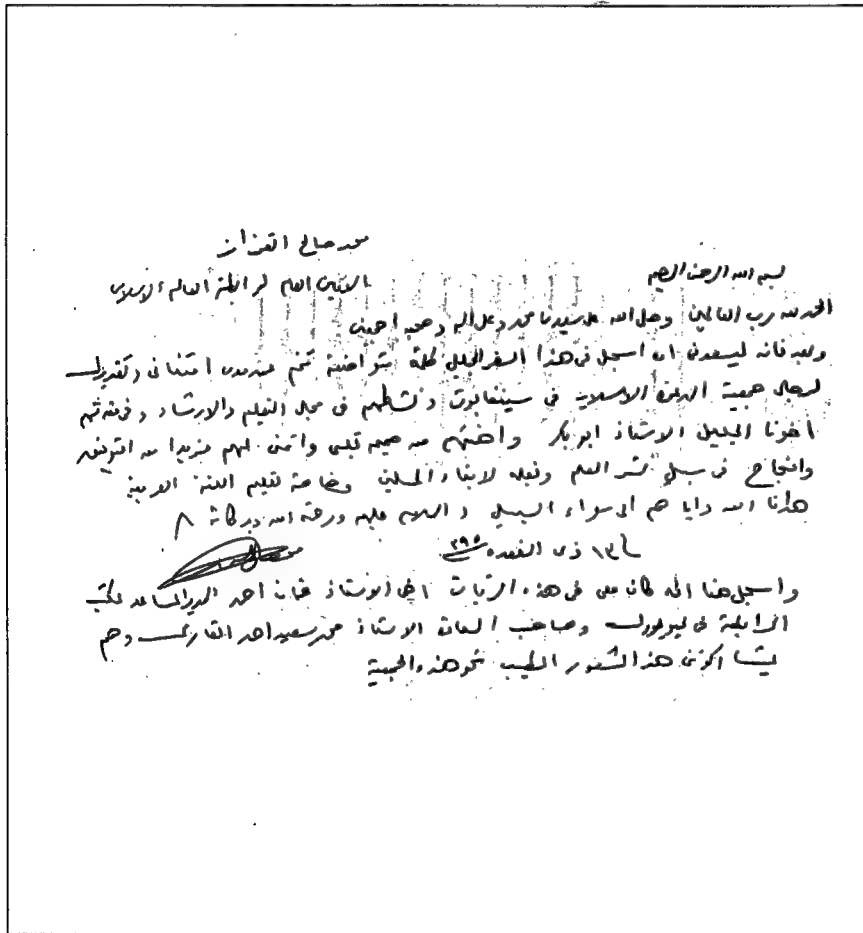 محمد صالح القزاز
الامين العام لرابطة العالم الاسلامى
بسم الله الرحمن الرحيم
الحمد لله رب العالمين وصلى الله على سيدنا محمد وعلى آله وصحبه اجمعين
وبعد فانه ليسعدنى ان اسجل فى هذا السفر الجليل كلمة متواضعة تنم عن مدى امتنانى وتقديرى
لرجال جمعية الدعوة الاسلامية فى سينغابورة ونشاطهم فى مجال التعليم والارشاد وفى مقدمتهم
أخونا الجليل الاستاذ ابو بكر واهنئهم من صميم قلبى واتمنى لهم مزيدا من التوفيق
والنجاح فى سبيل نشر العلم ونفعه لابناء المسلمين وخاصة تعليم اللغة العربية
هدانا الله وايا هم الى سواء السبيل والسلام عليه ورحمة الله وبركاته
١٣ ذى القعدة ٣٩٥
واسجل هنا انه كان معى فى هذه الزيارت اخى الاستاذ احمد المدير المساعد لمكتب
الرابطة فى نيويورك وصاحب السعادة الاستاذ محمد سعيد احمد وهم
يشاركونى هذ الشعور الطيب نحو هذه الجمعية